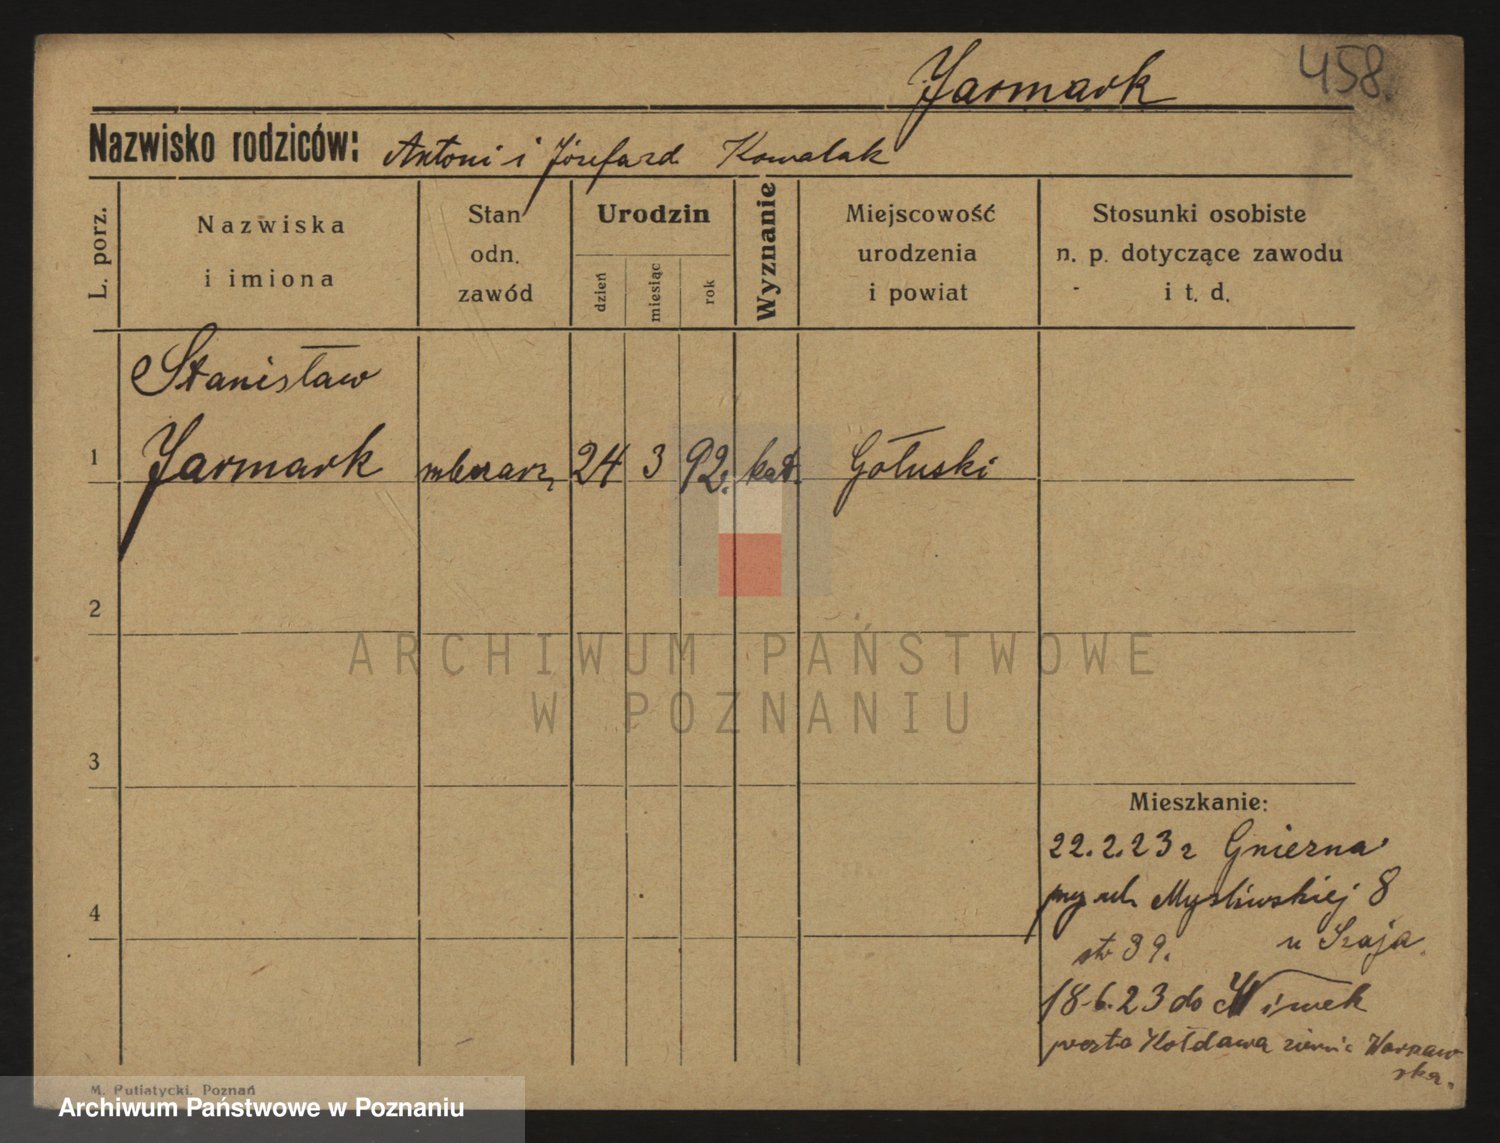 Jarmark
458.
Nazwisko rodziców: Antoni i Kowalak
L. porz.
Nazwiska
i imiona
Stan
odn.
zawód
Urodzin
dzień
miesiąc
rok
Wyznanie
Miejscowość
urodzenia
i powiat
Stosunki osobiste
n. p. dotyczące zawodu
i t. d.
Stanisław
1 Jarmark mleczarz 24 3 92. kat. Gołuski
2
ARCHIWUM PAŃSTWOWE
W POZNANIU
3
Mieszkanie:
22.2.23 r Gniezna
przy ul. Myśliwskiej 8
4
str 39. u Szaja
18.6.23 do
poczta ziemia Warszaw
ska.
M. Putiatycki, Poznań
Archiwum Państwowe w Poznaniu